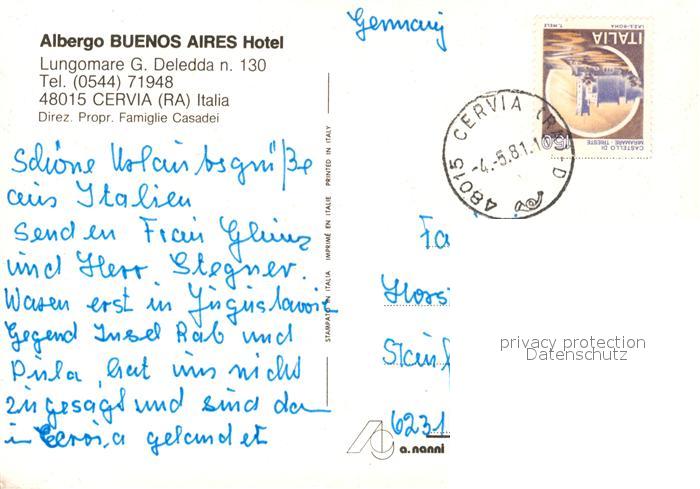 Albergo BUENOS AIRES Hotel
Lungomare G. Deledda n. 130
Tel. (0544) 71948
48015 CERVIA (RA) Italia
Direz. Propr. Famiglie Casadei
Schöne Urlaubsgrüße
aus Italien
senden Frau
und Herr Stegner.
Waren erst in Jugoslavoie
Gegend Insel Rab und
Pula, hat uns nicht
zugesagt und sind dan
in Cervia gelandet
STAMPATO IN ITALIA IMPRIMÉ EN ITALIE PRINTED IN ITALY
Germany
ITALIA
CASTELLO DI
MIRAMARE-TRIESTE
T. MELE
I.P.Z.S.-ROMA
150
48015 CERVIA (RA)
-4.-5.81.1
Fa
Hors
6231
privacy protection
Datenschutz
a. nanni